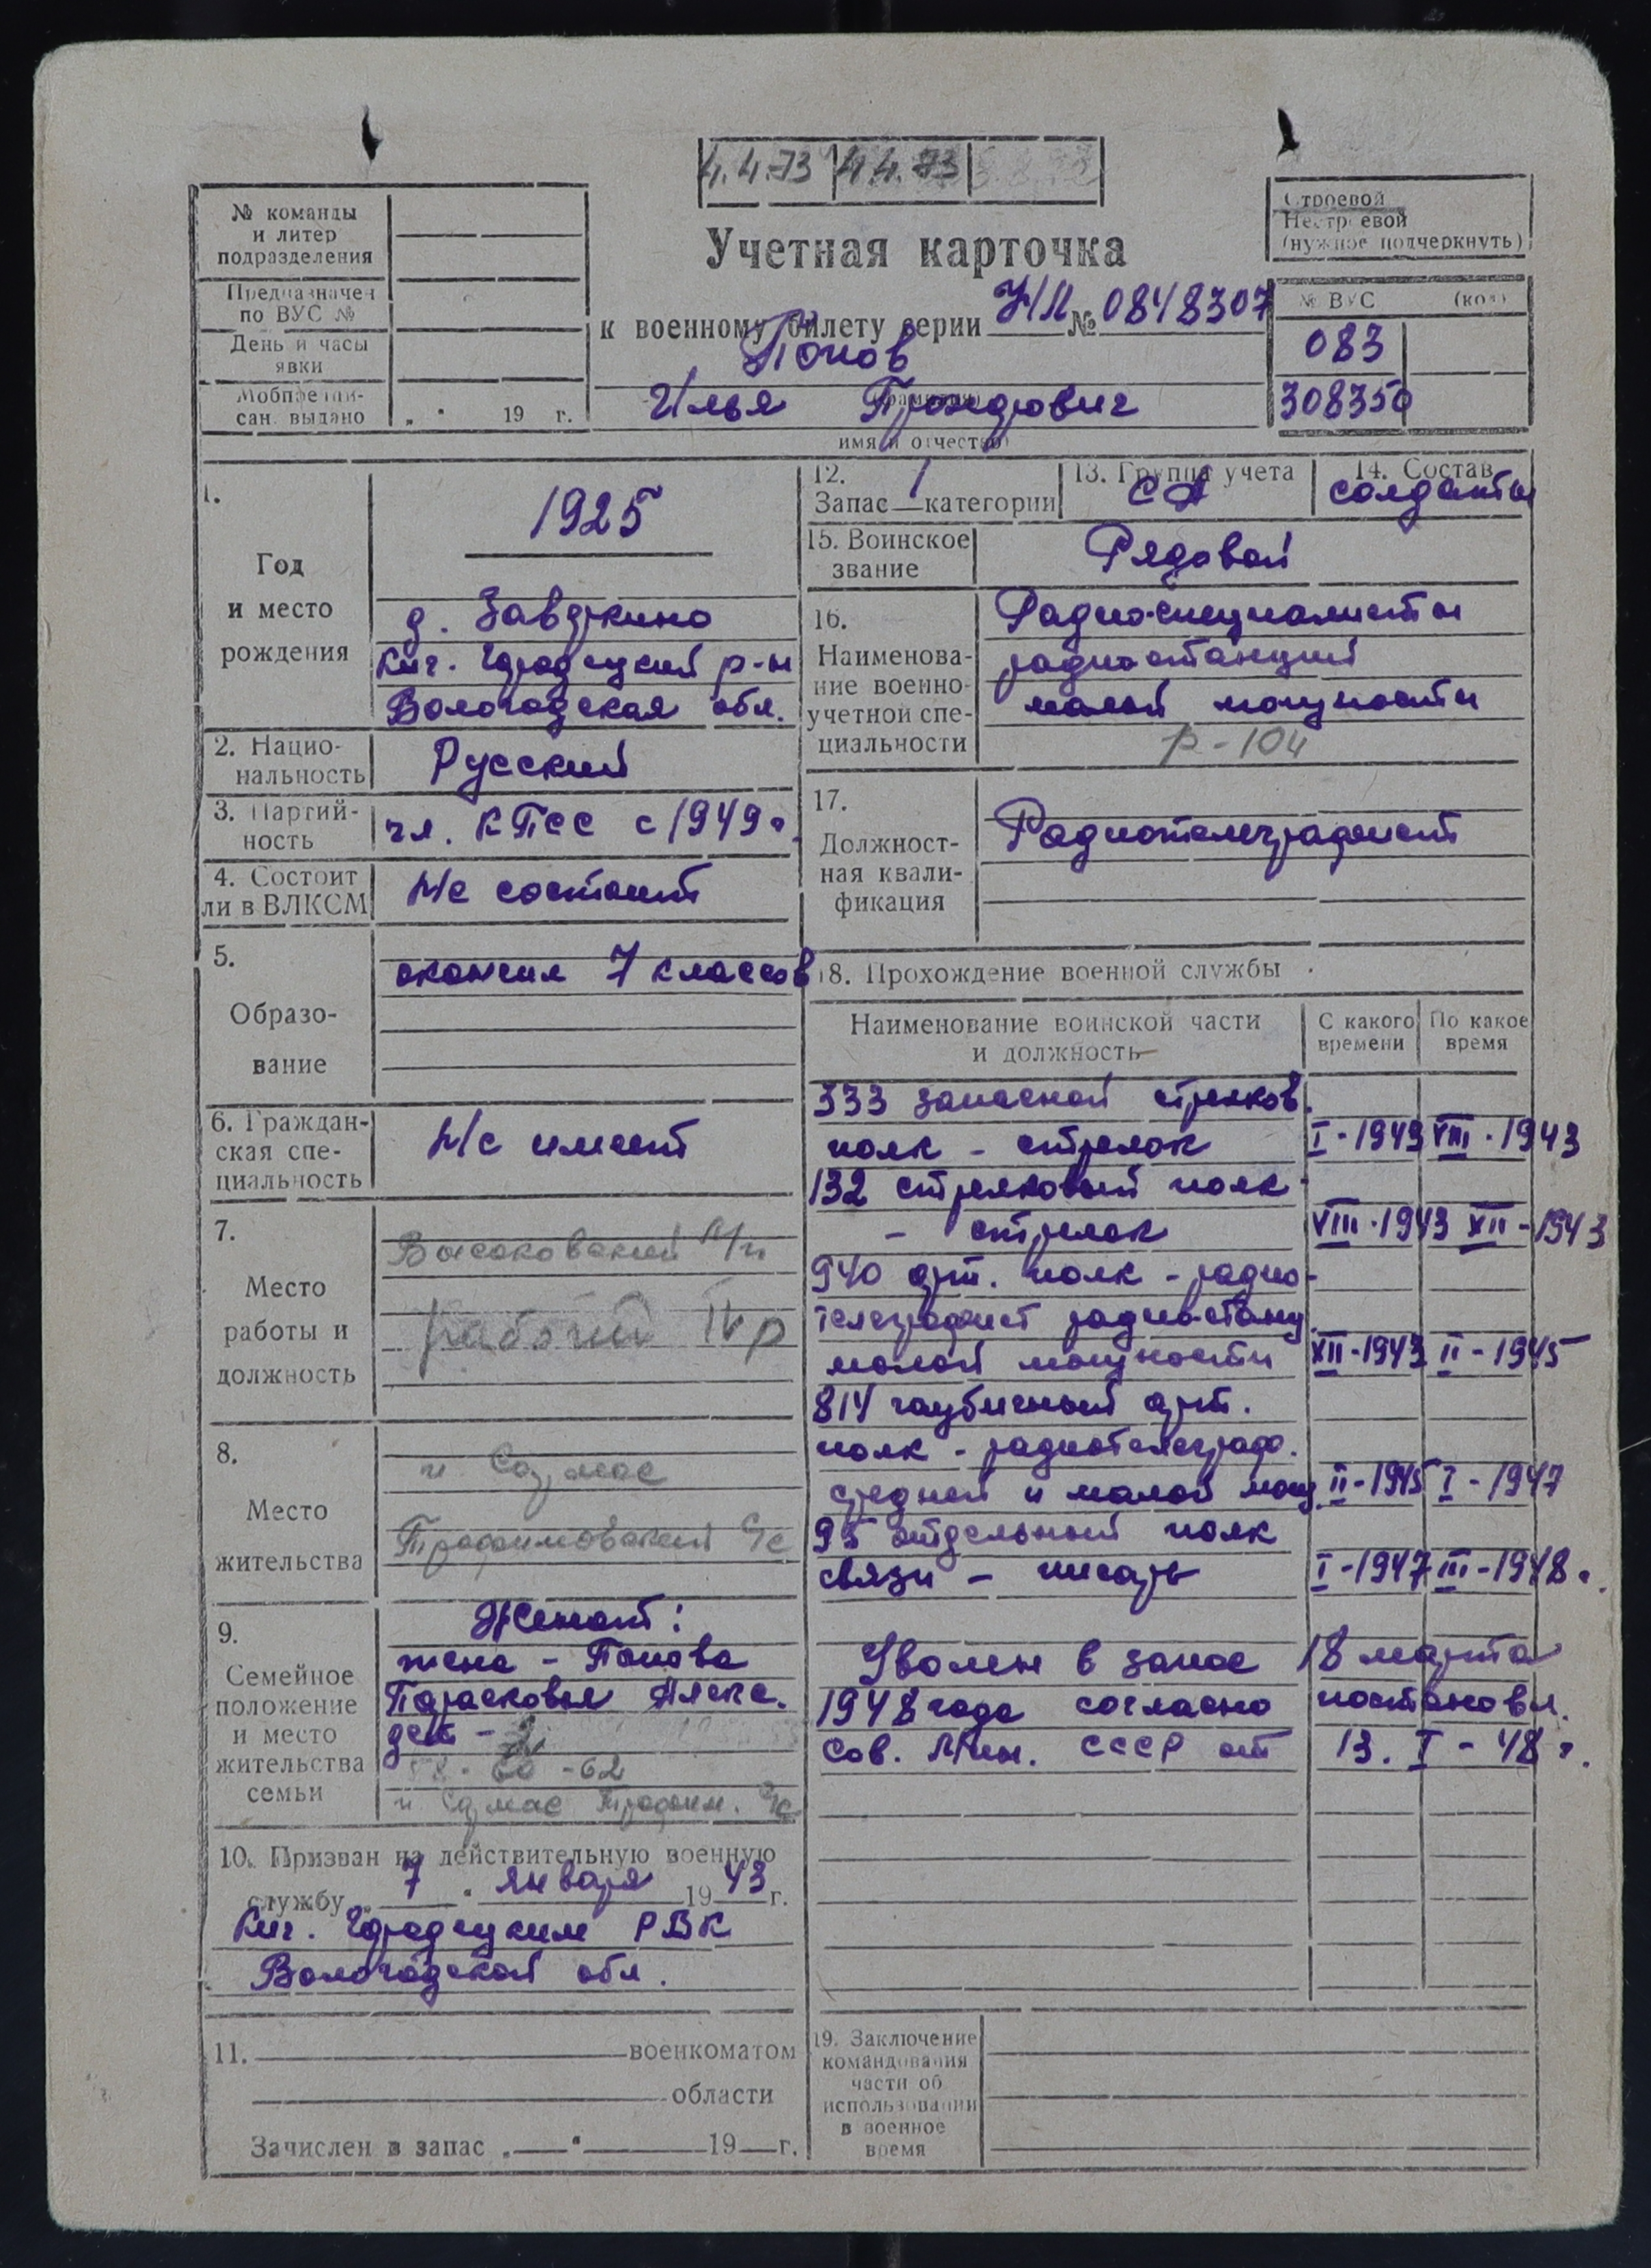 4.4.73 4.4.73
№ команды
и литер
подразделения
Предназначен
по ВУС №
День и часы
явки
Мобпредпи-
сан. выдано „ " 19 г.
Строевой
Нестроевой
(нужное подчеркнуть)
Учетная карточка
к военному билету серии НЛ № 0848307
Попов
Илья
имя и отчество
№ ВУС (код)
083
308350
1.
Год
и место
рождения
1925
д. Завджкино
Кич. Городецкий р-н
Вологодская обл.
2. Нацио-
нальность
Русский
3. Партий-
ность
чл. КПСС с 1949 г.
4. Состоит
ли в ВЛКСМ
Не состоит
5.
Образо-
вание
окончил 7 классов
6. Граждан-
ская спе-
циальность
Не имеет
7.
Место
работы и
должность
Высоковский
рабочий IV р
8.
Место
жительства
п. Сурмас
Трофимовский с/с
9.
Семейное
положение
и место
жительства
семьи
Женат:
жена - Попова
Парасковья Алекс.
дет -
- 60 - 62
п. Сурмас Трофим. с/с
10. Призван на действительную военную
службу „ 7 " января 1943 г.
Кич. Городецким РВК
Вологодской обл.
11. военкоматом
области
Зачислен в запас „ " 19 г.
12.
Запас 1 категории
13. Группа учета
СА
14. Состав
солдаты
15. Воинское
звание
Рядовой
16.
Наименова-
ние военно-
учетной спе-
циальности
Радио-специалисты
радиостанций
малой мощности
р-104
17.
Должност-
ная квали-
фикация
Радиотелеграфист
18. Прохождение военной службы
Наименование воинской части
и должность
С какого
времени
По какое
время
333 запасной стрелков.
полк - стрелок I-1943 VIII-1943
132 стрелковый полк
- стрелок VIII-1943 XII-1943
940 арт. полк - радио-
телеграфист радио-станц.
малой мощности XII-1943 II-1945
814 гаубичный арт.
полк - радиотелеграф.
средней и малой мощ. II-1945 I-1947
95 отдельный полк
связи - писарь I-1947 III-1948 г.
Уволен в запас 18 марта
1948 года согласно постановл.
Сов. Мин. СССР от 13.I-48 г.
19. Заключение
командования
части об
использовании
в военное
время